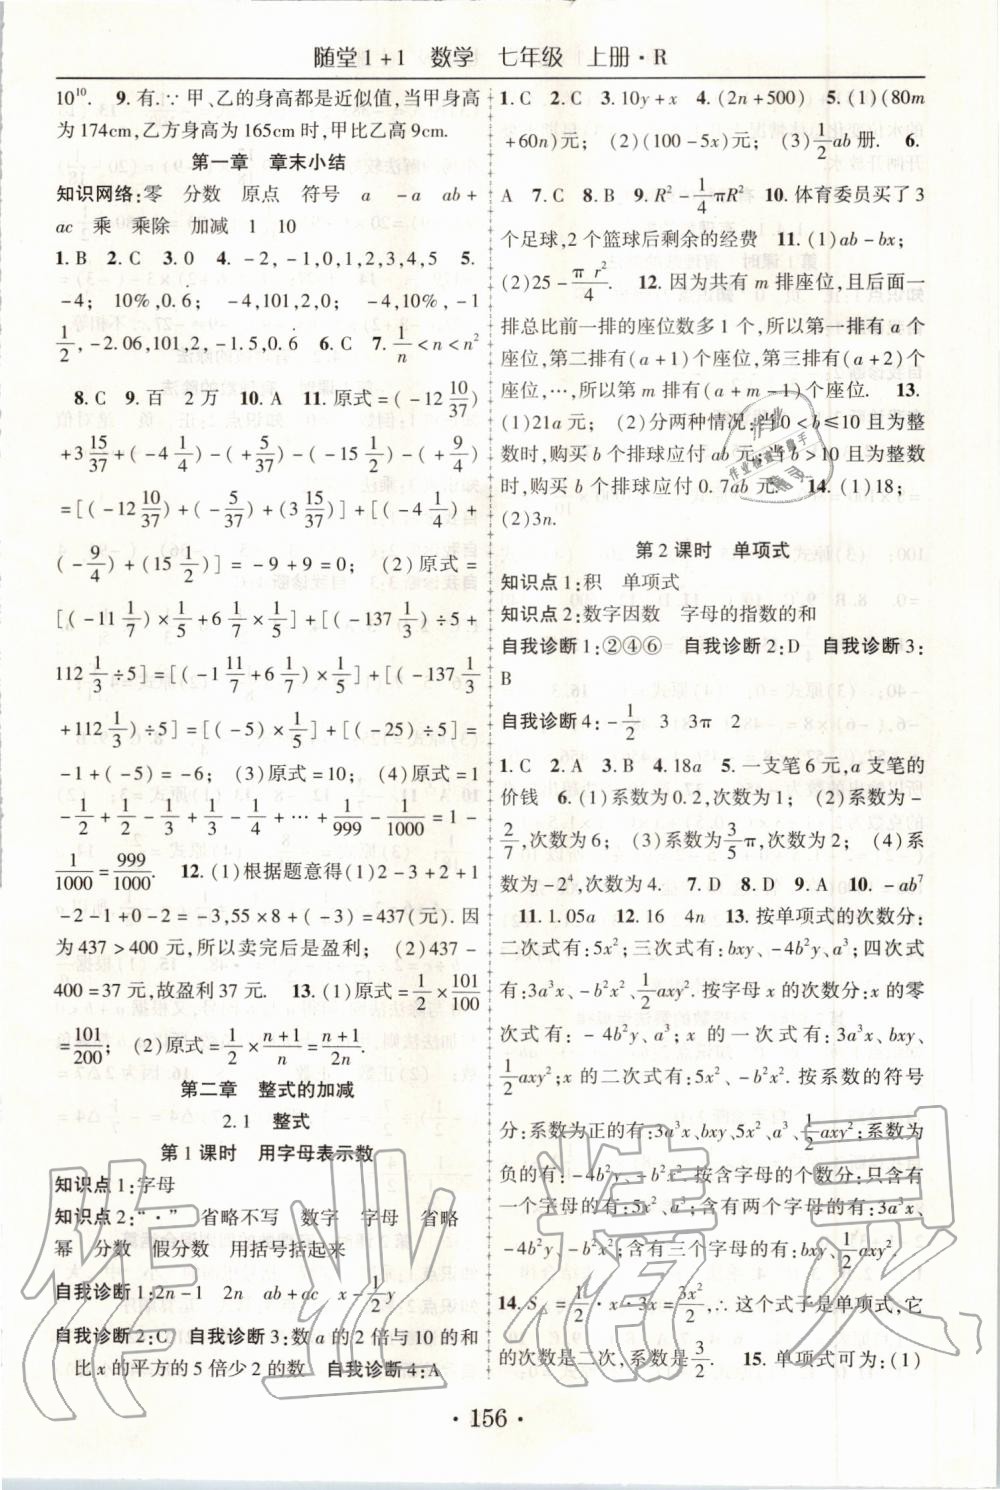 随堂1+1 数学 七年级 上册·R
10¹⁰. 9.有.∵甲、乙的身高都是近似值,当甲身高
为174cm,乙方身高为165cm时,甲比乙高9cm.
第一章 章末小结
知识网络:零 分数 原点 符号 a -a ab+
ac 乘 乘除 加减 1 10
1.B 2.C 3.0 4.-2,-1,0,1,2,3,4,5 5.
-4; 10%,0.6; -4,101,2,0; -4,10%,-1
1/2,-2.06,101,2,-1.5,0.6 6.C 7.1/n<n<n²
8.C 9.百 2万 10.A 11.原式=(-12 10/37)
+3 15/37+(-4 1/4)-(+5/37)-(-15 1/2)-(+9/4)
=[(-12 10/37)+(-5/37)+(3 15/37)]+[(-4 1/4)+
(-9/4)+(15 1/2)]=-9+9=0; (2)原式=
[(-11 6/7)×1/5+6 6/7×1/5]+[(-137 1/3)÷5+
112 1/3÷5]=[(-11 6/7+6 6/7)×1/5]+[(-137 1/3
+112 1/3)÷5]=[(-5)×1/5]+[(-25)÷5]=
-1+(-5)=-6; (3)原式=10; (4)原式=1
-1/2+1/2-1/3+1/3-1/4+…+1/999-1/1000=1-
1/1000=999/1000. 12.(1)根据题意得(1)2-3+2+1
-2-1+0-2=-3,55×8+(-3)=437(元).因
为437>400元,所以卖完后是盈利; (2)437-
400=37元,故盈利37元. 13.(1)原式=1/2×101/100
=101/200; (2)原式=1/2×(n+1)/n=(n+1)/2n.
第二章 整式的加减
2.1 整式
第1课时 用字母表示数
知识点1:字母
知识点2:“·” 省略不写 数字 字母 省略
幂 分数 假分数 用括号括起来
自我诊断1:2n-1 2n ab+ac x-1/2y
自我诊断2:C 自我诊断3:数a的2倍与10的和
比x的平方的5倍少2的数 自我诊断4:A
1.C 2.C 3.10y+x 4.(2n+500) 5.(1)(80m
+60n)元; (2)(100-5x)元; (3)1/2ab册. 6.
A 7.C 8.B 9.R²-1/4πR² 10.体育委员买了3
个足球,2个篮球后剩余的经费 11.(1)ab-bx;
(2)25-πr²/4. 12.因为共有m排座位,且后面一
排总比前一排的座位数多1个,所以第一排有a个
座位,第二排有(a+1)个座位,第三排有(a+2)个
座位,…,所以第m排有(a+m-1)个座位. 13.
(1)21a元; (2)分两种情况:当0<b≤10且为整
数时,购买b个排球应付ab元;当b>10且为整数
时,购买b个排球应付0.7ab元. 14.(1)18;
(2)3n.
第2课时 单项式
知识点1:积 单项式
知识点2:数字因数 字母的指数的和
自我诊断1:②④⑥ 自我诊断2:D 自我诊断3:
B
自我诊断4:-1/2 3 3π 2
1.C 2.A 3.B 4.18a 5.一支笔6元,a支笔的
价钱 6.(1)系数为0.2,次数为1; (2)系数为-
2/7,次数为6; (3)系数为3/5π,次数为2; (4)系
数为-2⁴,次数为4. 7.D 8.D 9.A 10.-ab⁷
11.1.05a 12.16 4n 13.按单项式的次数分:
二次式有:5x²;三次式有:bxy、-4b²y、a³;四次式
有:3a³x、-b²x²、1/2axy².按字母x的次数分:x的零
次式有:-4b²y、a³;x的一次式有:3a³x、bxy、
1/2axy²;x的二次式有:5x²、-b²x².按系数的符号
分:系数为正的有:3a³x、bxy、5x²、a³、1/2axy²;系数为
负的有:-4b²y、-b²x².按含字母的个数分:只含有
一个字母的有:5x²、a³;含有两个字母的有:3a³x、
-4b²y、-b²x²;含有三个字母的有:bxy、1/2axy².
14.S△=1/2·x·3x=3x²/2,∴这个式子是单项式,它
的次数是二次,系数是3/2. 15.单项式可为:(1)
·156·
作业精灵